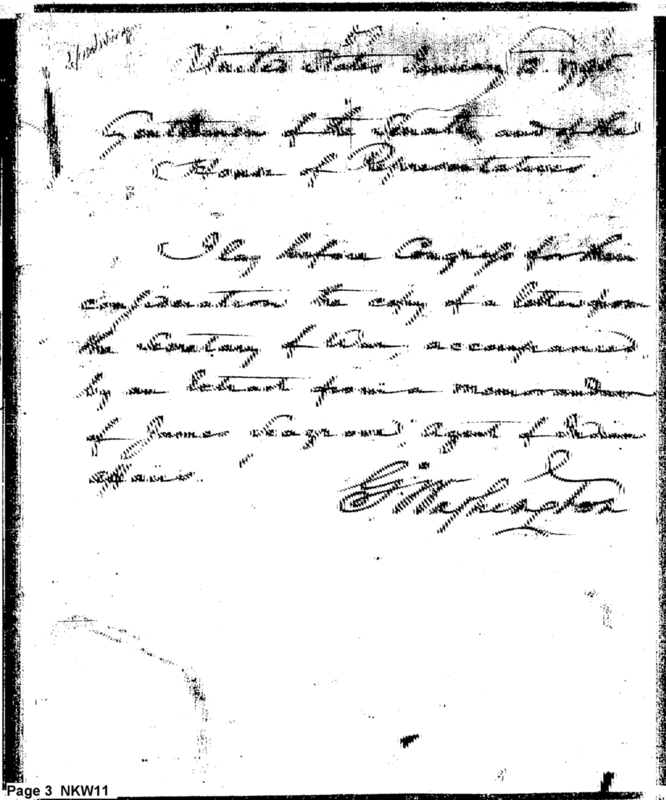 United States January
Gentlemen of the Senate, and of the
House of Representatives.
I lay before Congress for their
consideration the copy of a letter from
the Secretary of War, accompanied
by an Extract from a memorandum
of James Seagrove, agent of Indian
affairs.
G:Washington
Page 3 NKW11